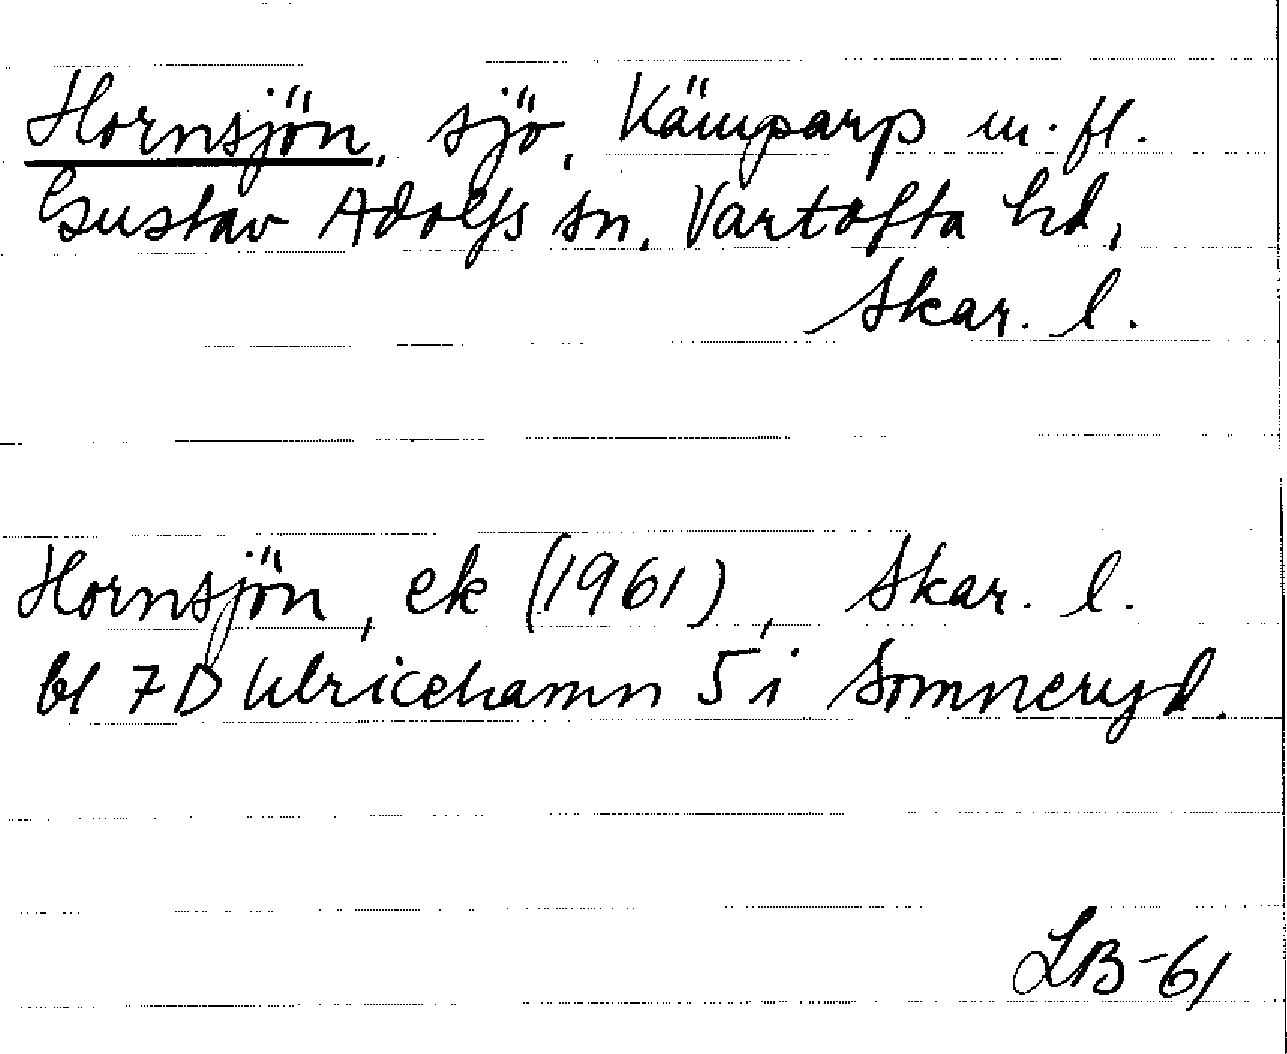 Hornsjön, sjö, Kämparp m. fl.
Gustav Adolfs sn, Vartofta hd,
Skar. l.
Hornsjön, ek (1961), Skar. l.
bl 7D Ulricehamn 5 i Somneryd.
LB-61